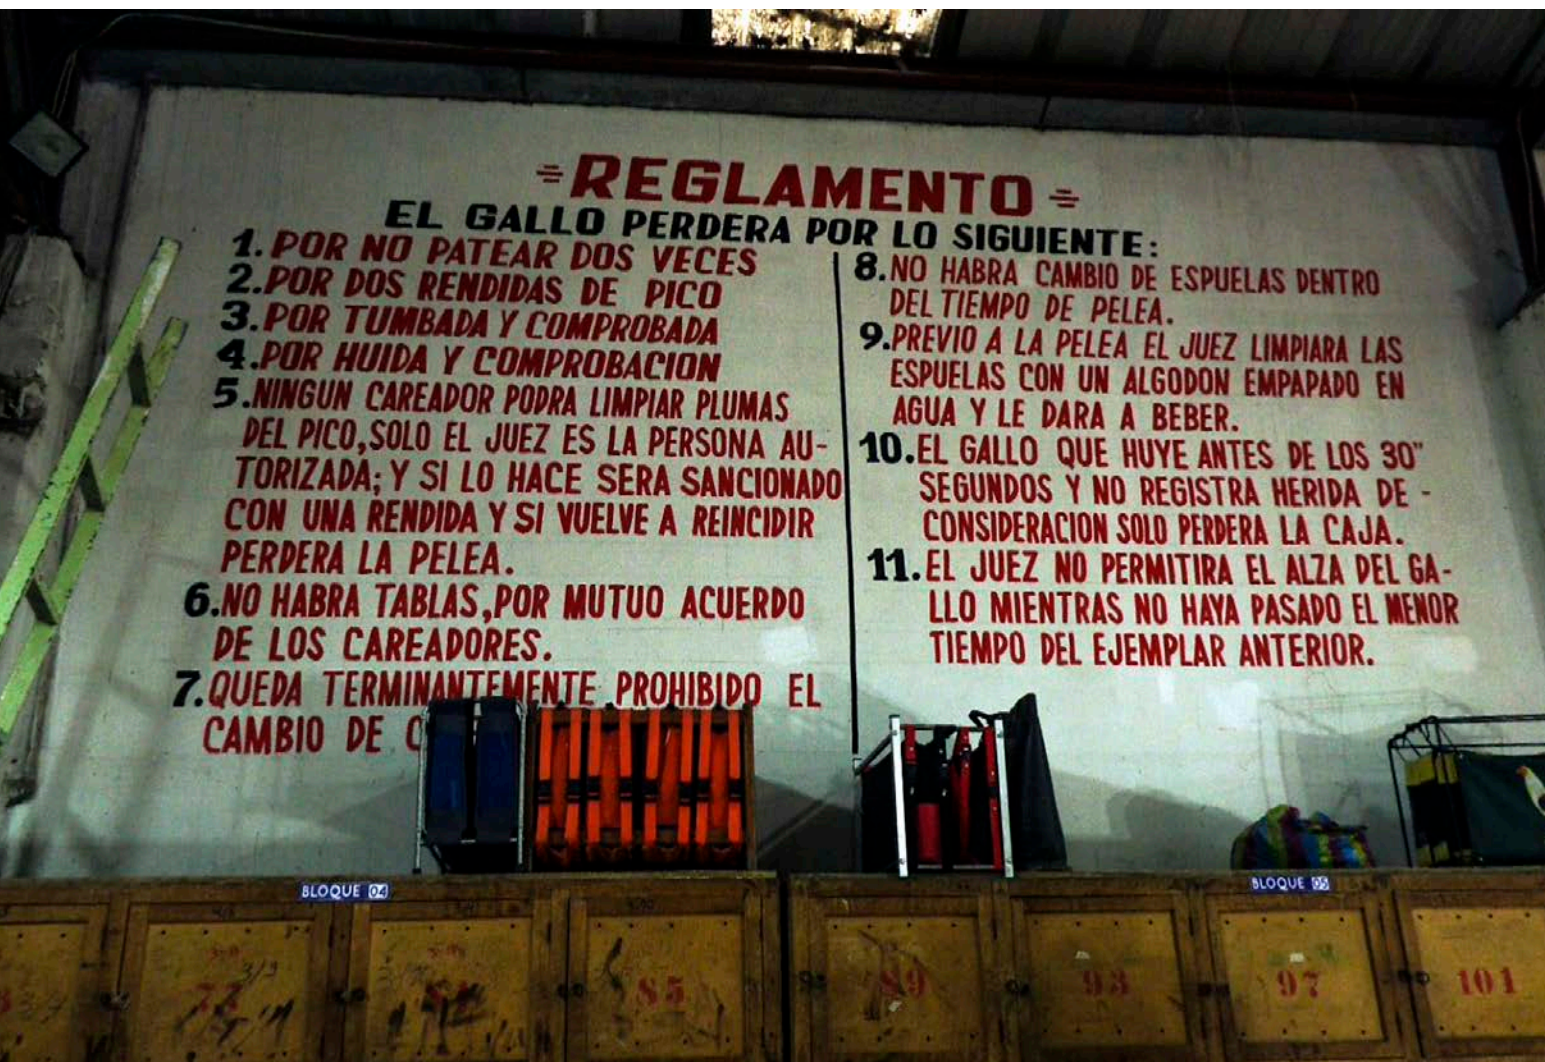 REGLAMENTO
EL GALLO PERDERA POR LO SIGUIENTE:
1. POR NO PATEAR DOS VECES
2. POR DOS RENDIDAS DE PICO
3. POR TUMBADA Y COMPROBADA
4. POR HUIDA Y COMPROBACION
5. NINGUN CAREADOR PODRA LIMPIAR PLUMAS
DEL PICO, SOLO EL JUEZ ES LA PERSONA AU-
TORIZADA; Y SI LO HACE SERA SANCIONADO
CON UNA RENDIDA Y SI VUELVE A REINCIDIR
PERDERA LA PELEA.
6. NO HABRA TABLAS, POR MUTUO ACUERDO
DE LOS CAREADORES.
7. QUEDA TERMINANTEMENTE PROHIBIDO EL
CAMBIO DE
8. NO HABRA CAMBIO DE ESPUELAS DENTRO
DEL TIEMPO DE PELEA.
9. PREVIO A LA PELEA EL JUEZ LIMPIARA LAS
ESPUELAS CON UN ALGODON EMPAPADO EN
AGUA Y LE DARA A BEBER.
10. EL GALLO QUE HUYE ANTES DE LOS 30"
SEGUNDOS Y NO REGISTRA HERIDA DE -
CONSIDERACION SOLO PERDERA LA CAJA.
11. EL JUEZ NO PERMITIRA EL ALZA DEL GA-
LLO MIENTRAS NO HAYA PASADO EL MENOR
TIEMPO DEL EJEMPLAR ANTERIOR.
BLOQUE 04
BLOQUE 05
77
85
89
93
97
101